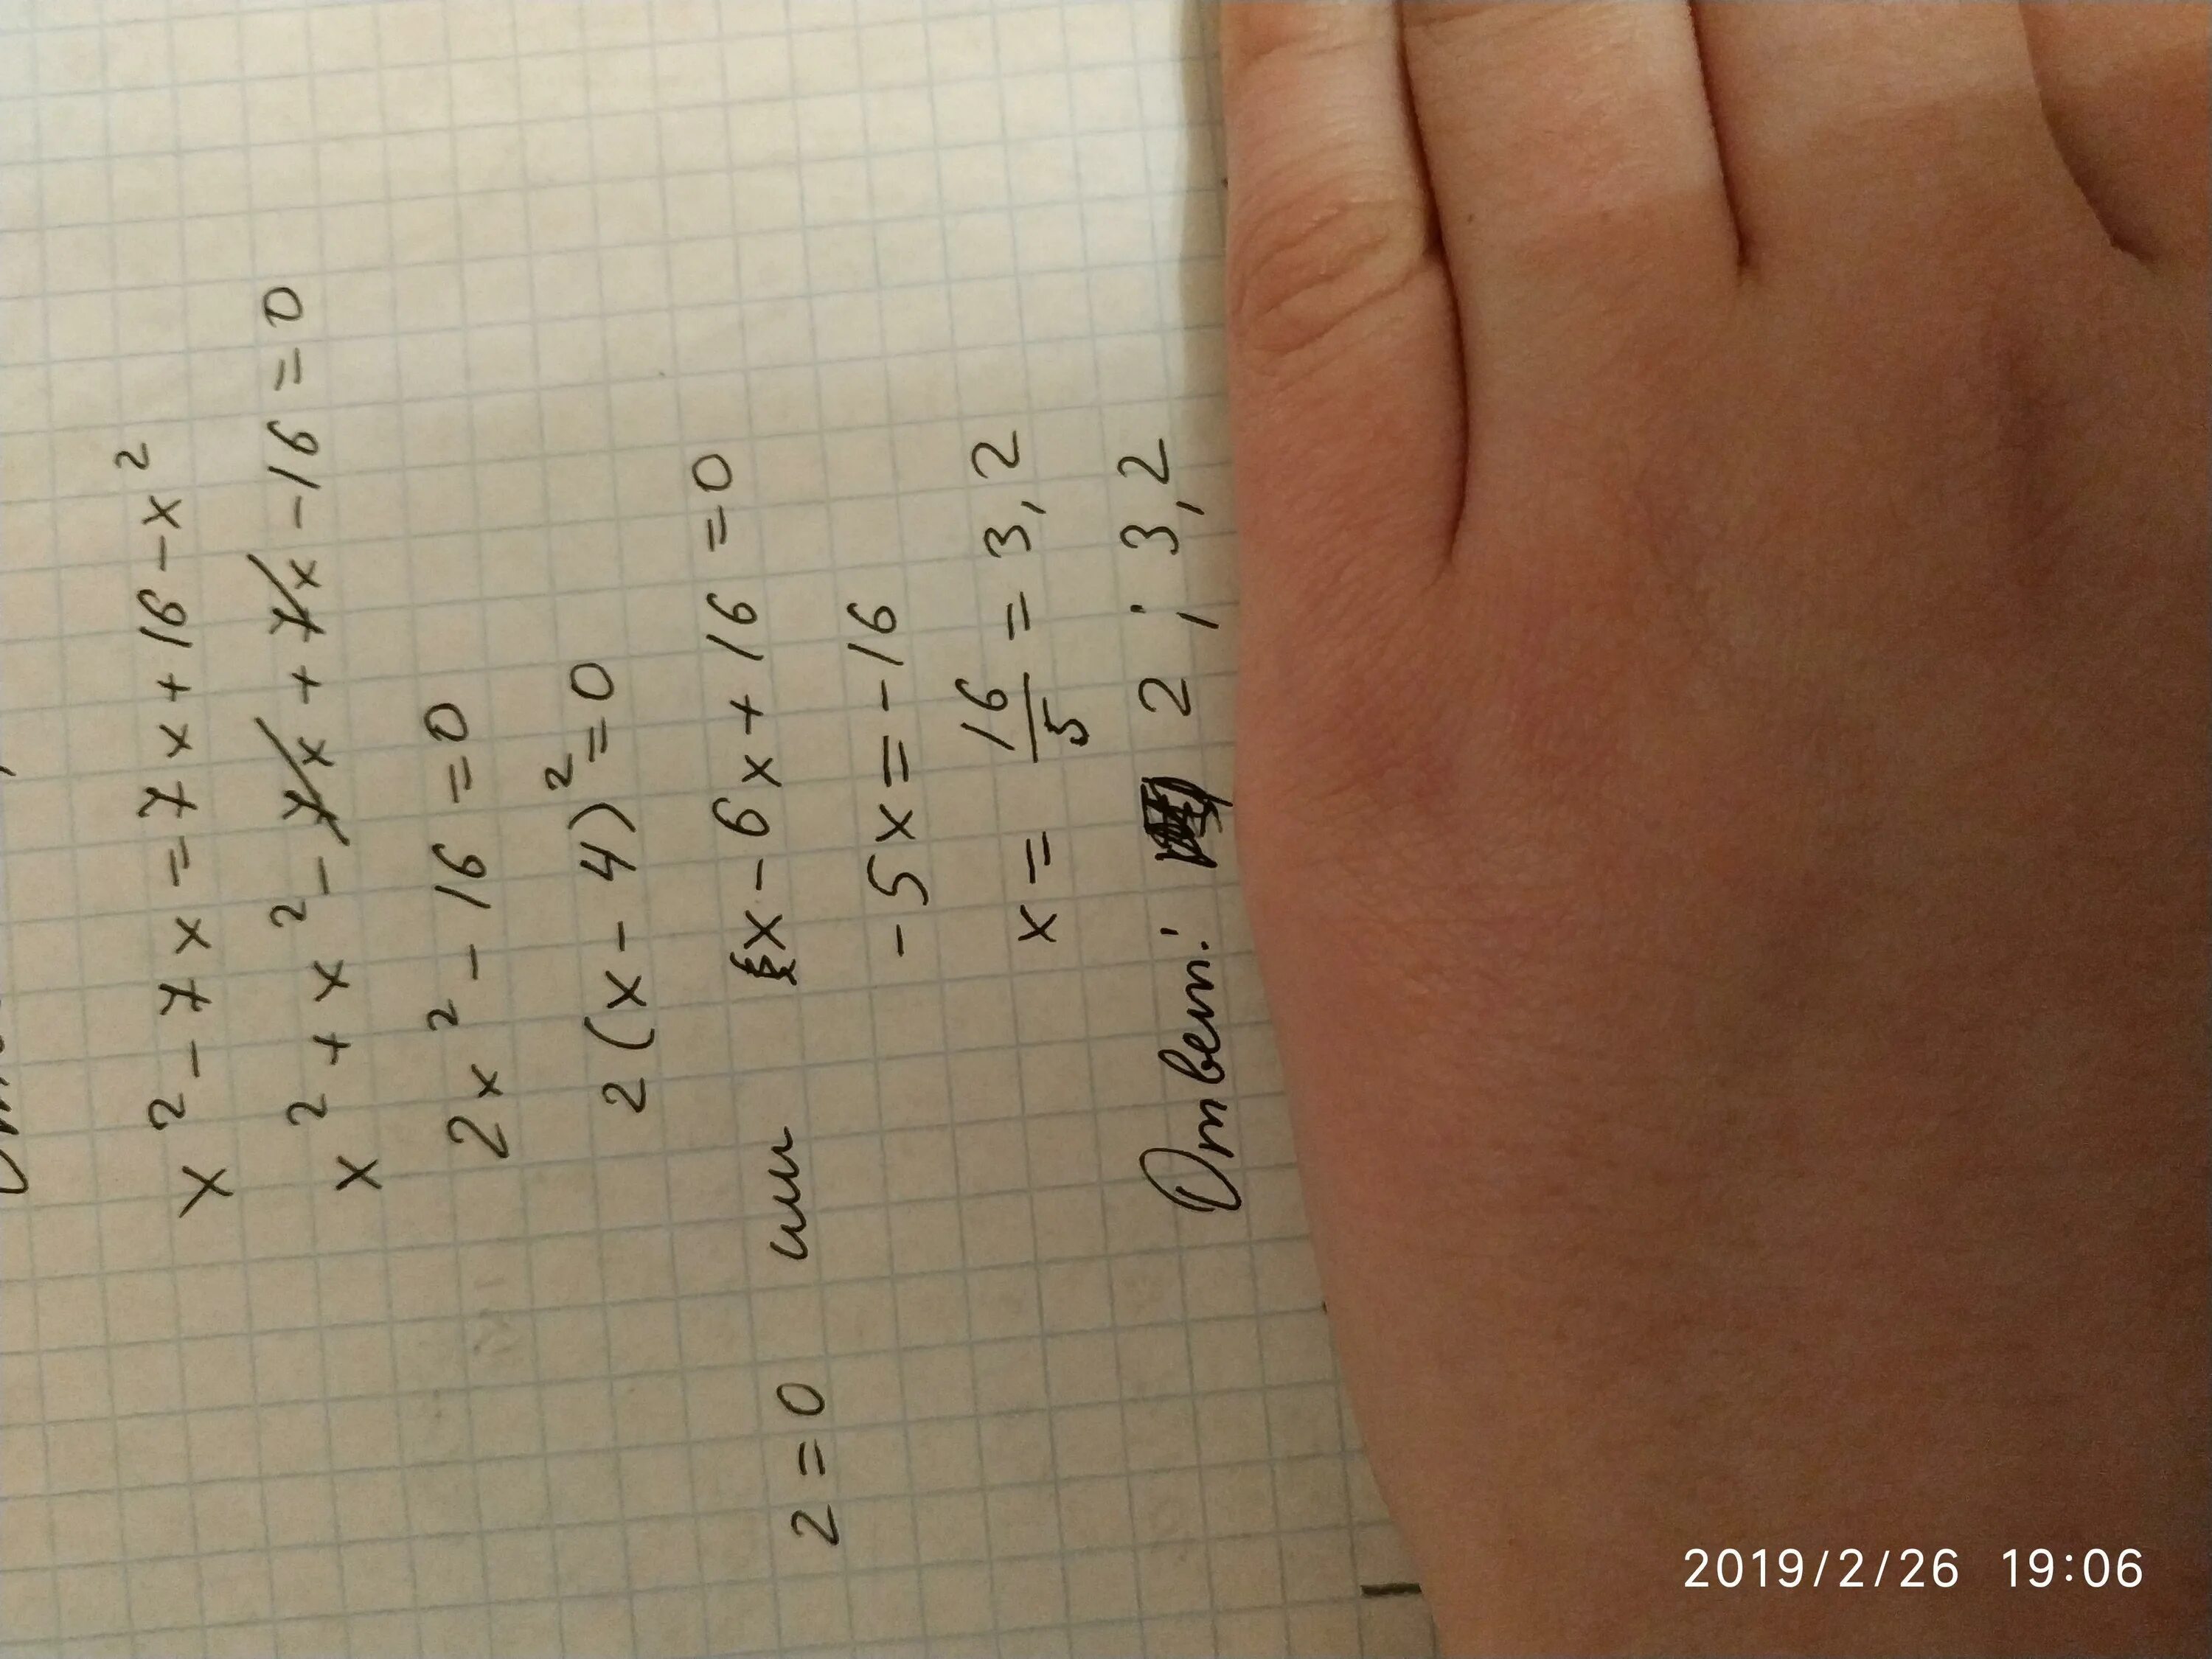 x² - 7x = 7x + 16 - x²
x² + x² - 7x + 7x - 16 = 0
2x² - 16 = 0
2(x - 4)² = 0
2 = 0 или x - 6x + 16 = 0
-5x = -16
x = 16/5 = 3,2
Ответ: 2; 3,2
2019/2/26 19:06